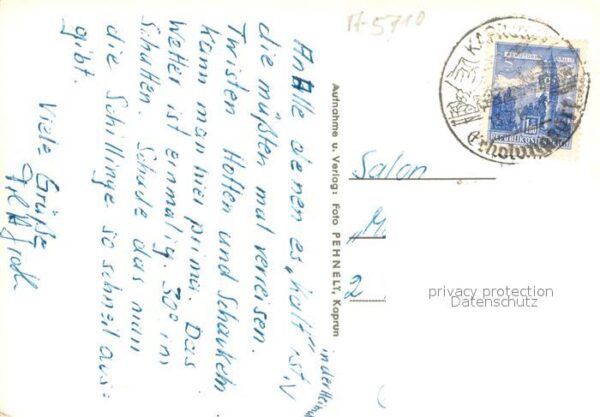 An Alle denen es „kalt" ist
in der
die müßten mal verreisen.
Twisten Hotten und Schaukeln
kann man hier prima. Das
Wetter ist einmalig. 30° im
Schatten. Schade das man
die Schillinge so schnell aus-
gibt.
Viele Grüße
Aufnahme u. Verlag: Foto PEHNELT, Kaprun
A-5710
KAPRUN
Republik Öst
Salon
„M.
2
privacy protection
Datenschutz